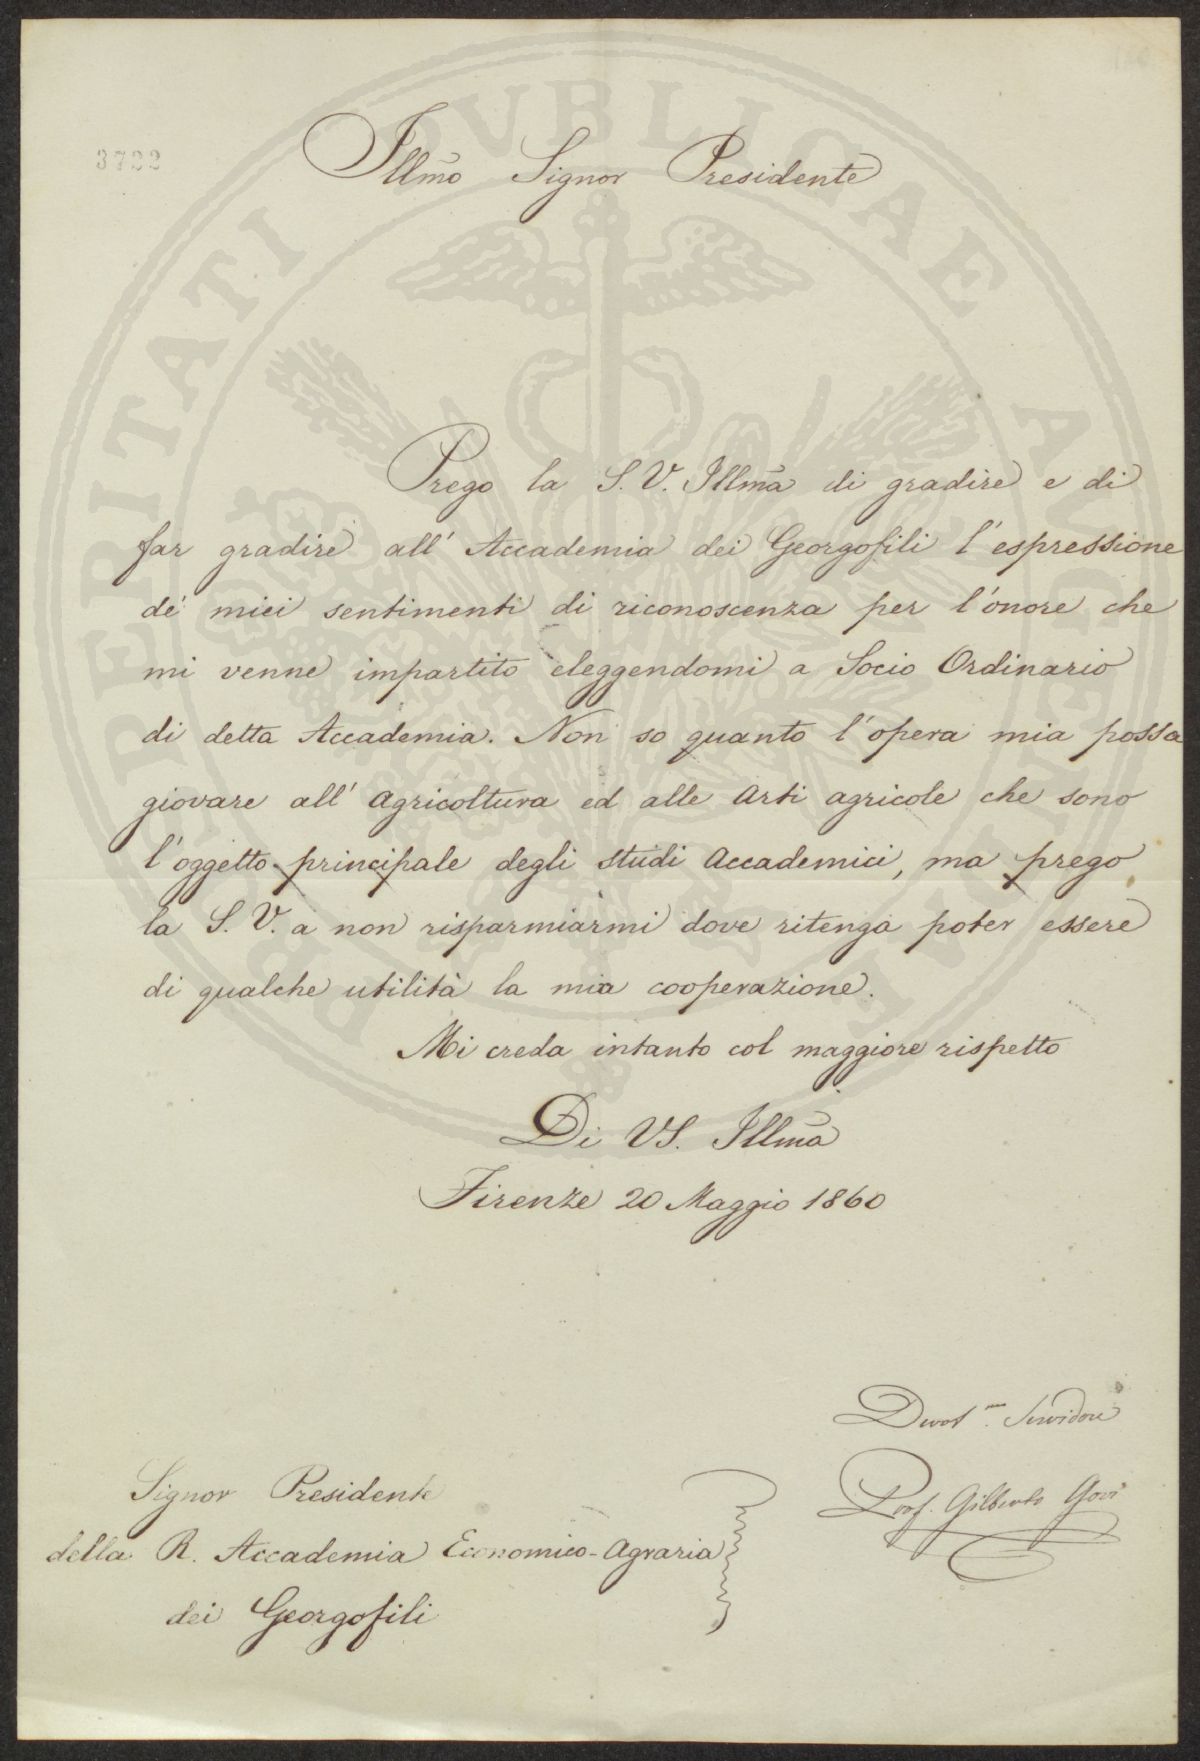 3722
Illmo Signor Presidente
Prego la S. V. Illma di gradire e di
far gradire all' Accademia dei Georgofili l'espressione
de' miei sentimenti di riconoscenza per l'onore che
mi venne impartito eleggendomi a Socio Ordinario
di detta Accademia. Non so quanto l'opera mia possa
giovare all' Agricoltura ed alle Arti agricole che sono
l'oggetto principale degli studi Accademici, ma prego
la S. V. a non risparmiarmi dove ritenga poter essere
di qualche utilità la mia cooperazione.
Mi creda intanto col maggiore rispetto
Di VS. Illma
Firenze 20 Maggio 1860
Devot.mo Servidore
Prof. Gilberto Govi
Signor Presidente
della R. Accademia Economico-Agraria
dei Georgofili
PROSPERITATI PUBLICAE AUGENDAE